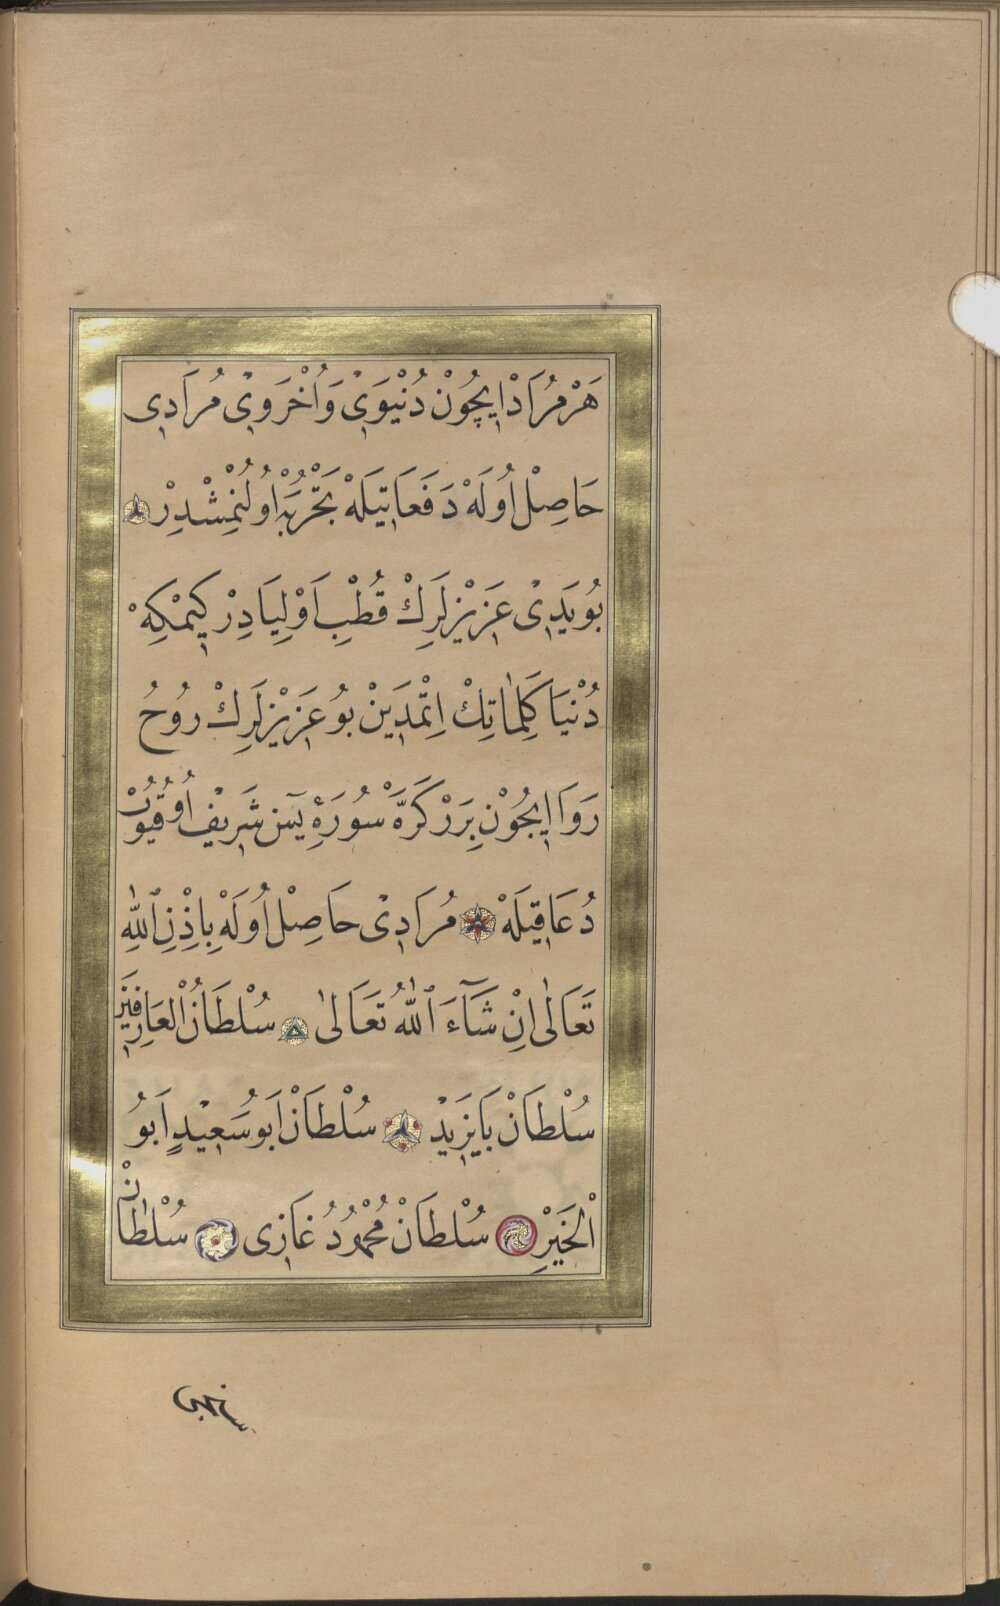 هَرْ مُرَادْ اِيچُوْنْ دُنْيَوِىْ وَاُخْرَوِىْ مُرَادِى
حَاصِلْ اُولَهْ دَفَعَاتِيلَهْ تَجْرُبَهْ اُولُنْمِشْدِرْ
بُويَدِىْ عَزِيْزلَرِكْ قُطْبِ اَوْلِيَادِرْ كِيمْكِهْ
دُنْيَا كَلِمَاتِكْ اِتْمَدَيِنْ بُو عَزِيْزلَرِكْ رُوحُ
رَوَا اِيچُوْنْ بِرَرْ كَرَّهْ سُورَهِٔ يٰسٓ شَرِيفْ اُوقُيُوبْ
دُعَا قِيلَهْ مُرَادِىْ حَاصِلْ اُولَهْ بِاِذْنِ ٱللّٰهِ
تَعَالٰى اِنْ شَآءَ ٱللّٰهُ تَعَالىٰ سُلْطَانُ الْعَارِفِيْنَ
سُلْطَانْ بَايَزِيدْ سُلْطَانْ اَبُو سُعِيْدٍ اَبُو
الْخَيْرْ سُلْطَانْ مُحْمُودُ غَازِى سُلْطَانْ